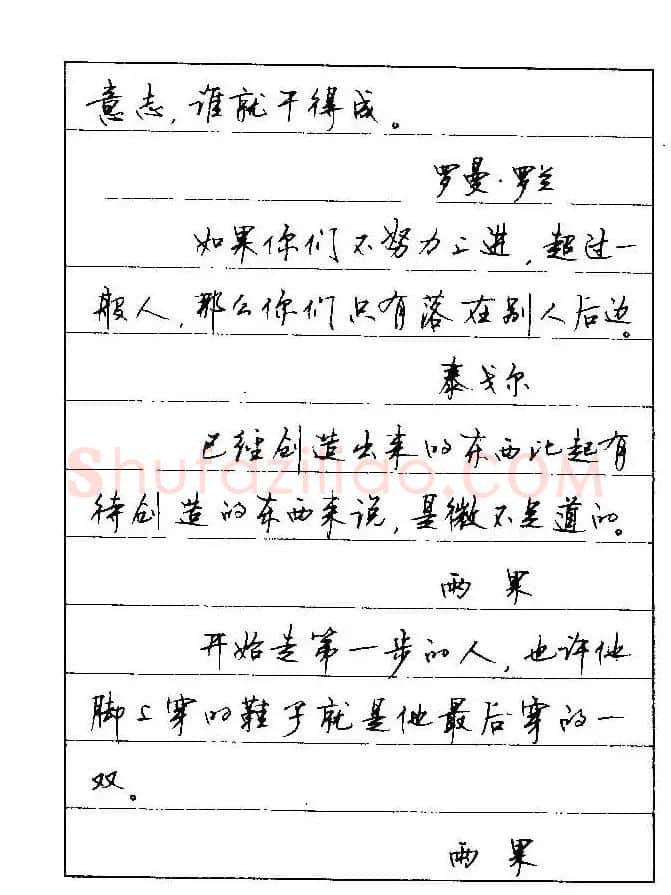 意志，谁就干得成。
罗曼·罗兰
如果你们不努力上进，超过一
般人，那么你们只有落在别人后边。
泰戈尔
已经创造出来的东西比起有
待创造的东西来说，是微不足道的。
雨果
开始走第一步的人，也许他
脚上穿的鞋子就是他最后穿的一
双。
雨果
Shufaziliao.COM